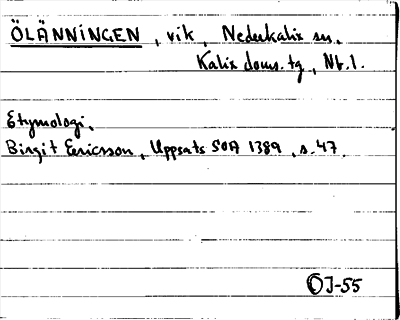 ÖLÄNNINGEN, vik, Nederkalix sn,
Kalix doms. tg, Nb. l.
Etymologi.
Birgit Ericsson, Uppsats SOA 1389, s. 47.
OJ-55